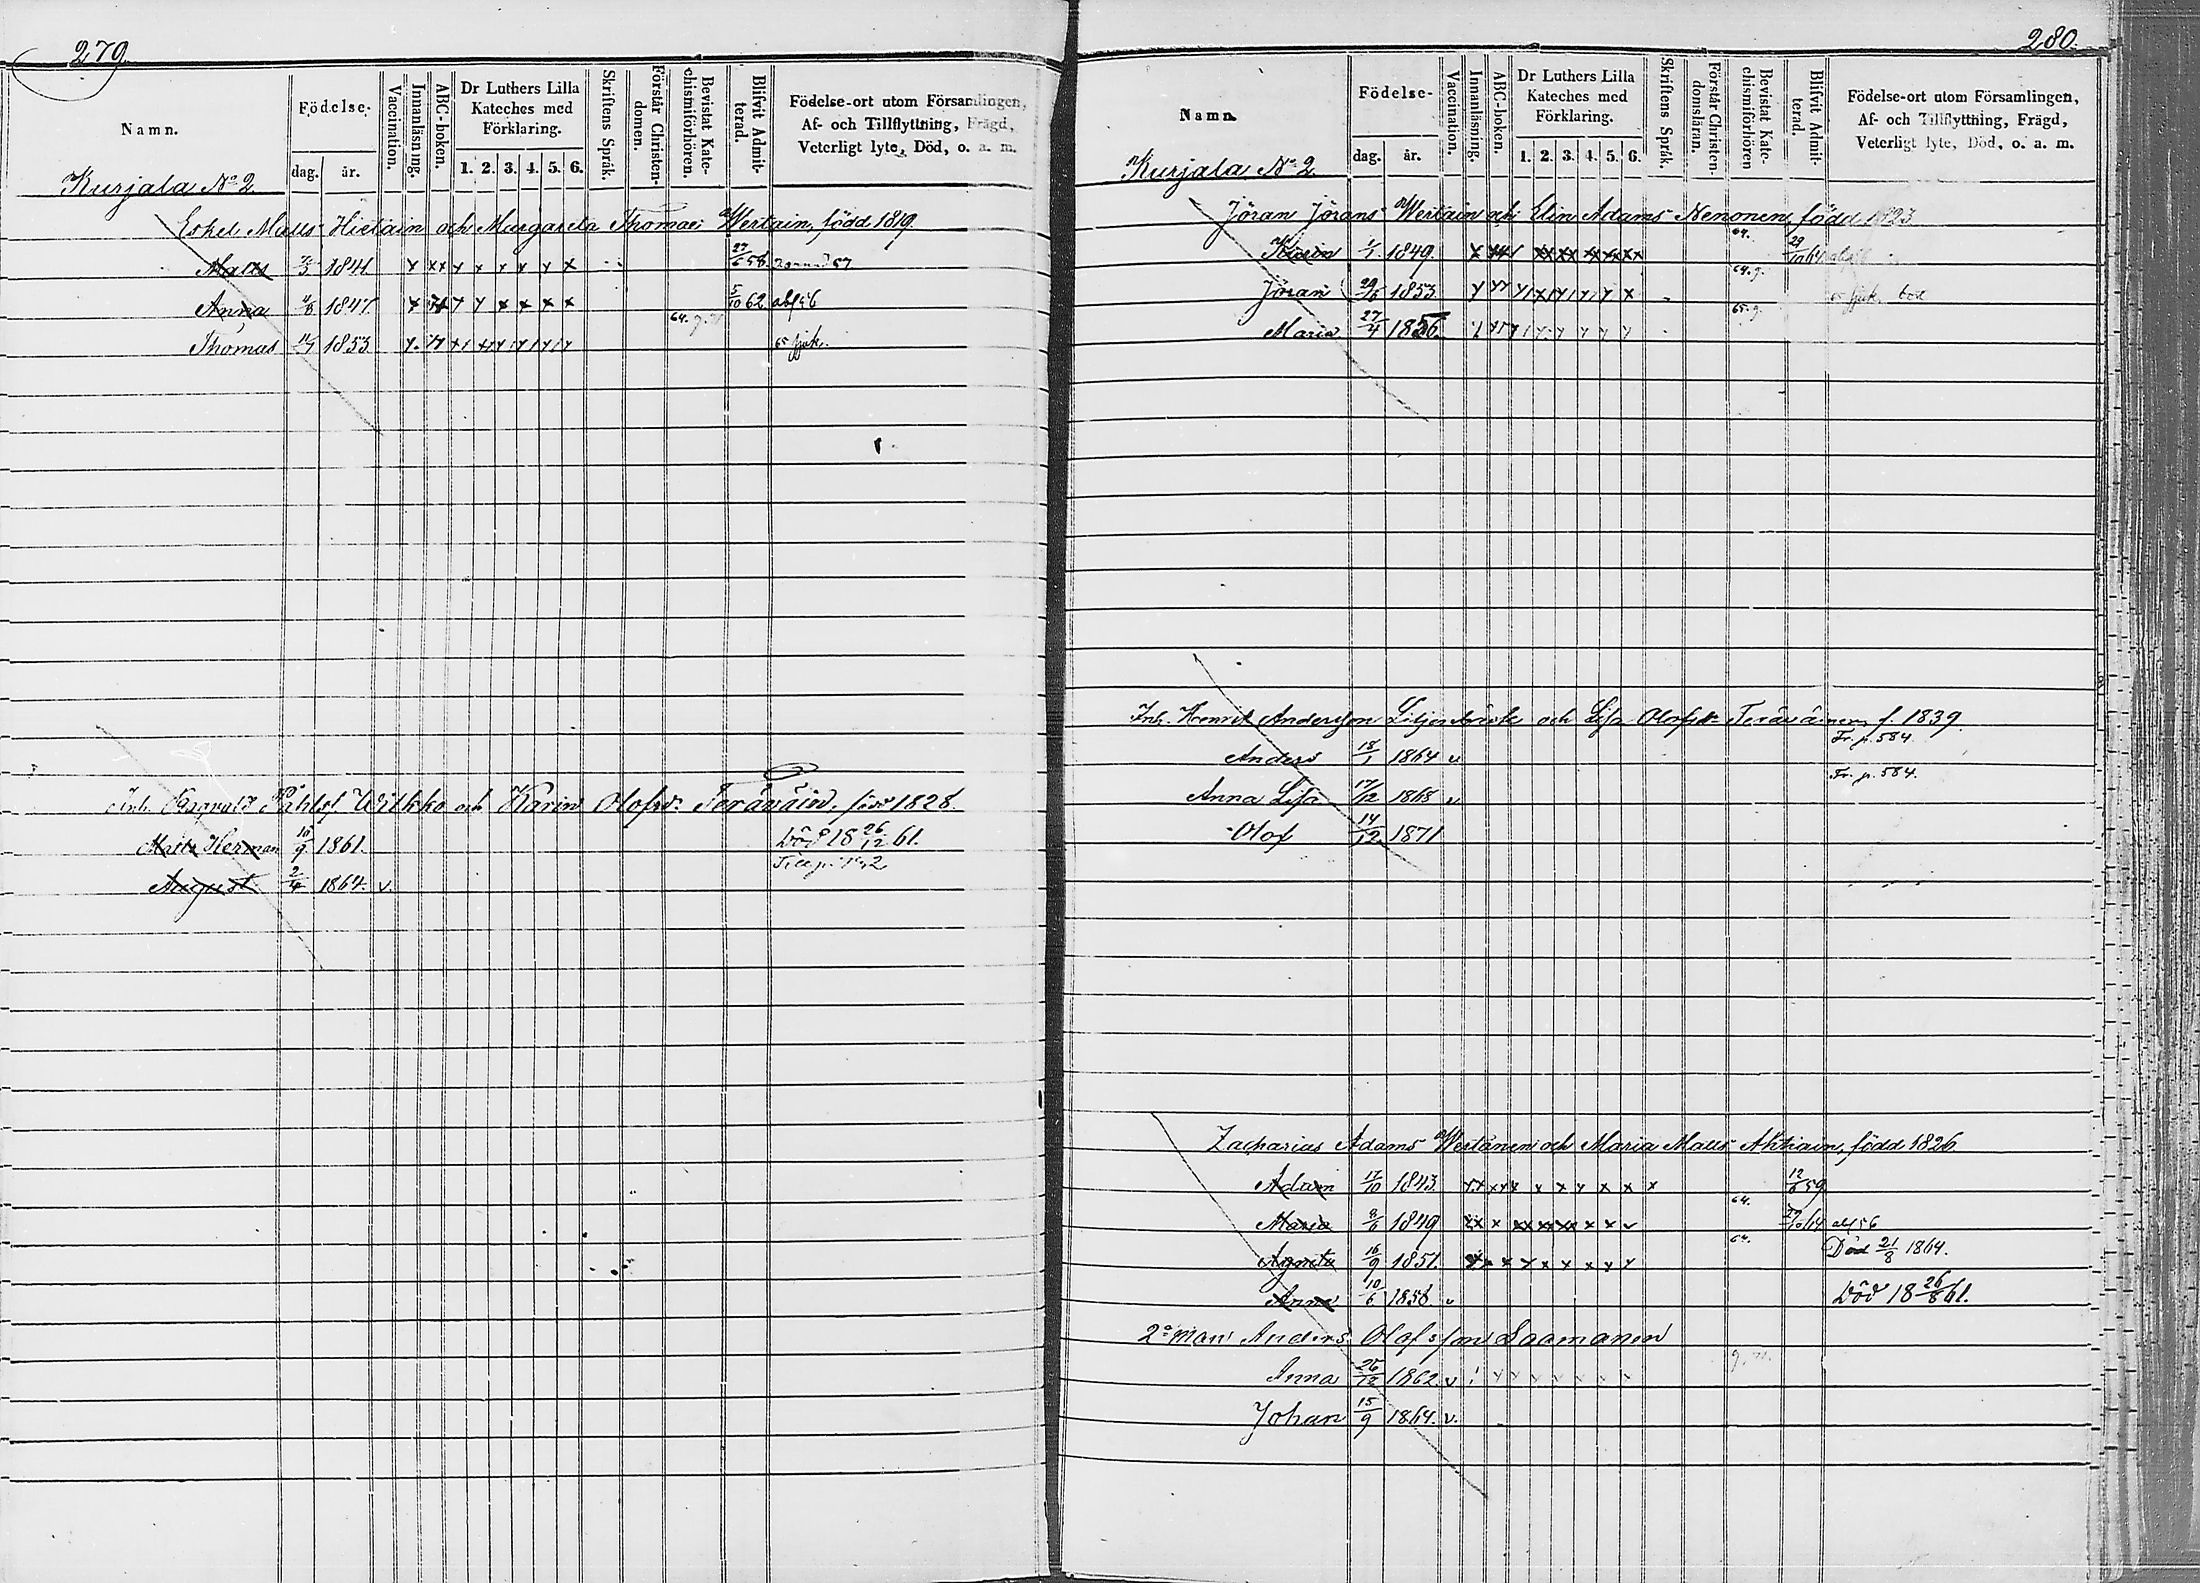 279.
Namn.
Födelse-
dag. år.
Vaccination.
Innanläsning.
ABC-bokon.
Dr Luthers Lilla
Kateches med
Förklaring.
1. 2. 3. 4. 5. 6.
Skriftens Språk.
Förstår Christen-
domen.
Bevistat Kate-
chismiförhören.
Blifvit Admit-
terad.
Födelse-ort utom Församlingen,
Af- och Tillflyttning, Frägd,
Veterligt lyte, Död, o. a. m.
Kurjala No 2
Eskel Matts Hietain och Margareta Thomae Wertain, född 1819.
Matts 1841. 27/6 58.
Anna 1847. 5/10 62
Thomas 1853 64. 65 sjuk.
Inh. Påhlsf. Wilkko och Karin Olofsdr född 1828.
Matts Herman 10/9 1861. Död 18 26/12 61.
August 2/4 1864. v.
280.
Namn.
Födelse-
dag. år.
Vaccination.
Innanläsning.
ABC-boken.
Dr Luthers Lilla
Kateches med
Förklaring.
1. 2. 3. 4. 5. 6.
Skriftens Språk.
Förstår Christen-
domsläran.
Bevistat Kate-
chismiförhören
Blifvit Admit-
terad.
Födelse-ort utom Församlingen,
Af- och Tillflyttning, Frägd,
Veterligt lyte, Död, o. a. m.
Kurjala No 2
Jöran Jörans Wertain och Elin Adams Nenonen, född 1823
Karin 1849. 64. 29/10 64
Jöran 1853. 64. g.
Maria 27/4 1856. 65. g.
Inh. Henrik Andersson och Lisa Olofsdr Teräväinen f. 1839.
Anders 18/1 1864 v Fr. p. 584.
Anna Lisa 17/12 1868 v Fr. p. 584.
Olof 14/12 1871
Zacharias Adams Wertänen och Maria Matts född 1826.
Adam 17/10 1843. 12/6 59
Maria 8/6 1849 64.
Agneta 16/9 1851. 64. Död 21/8 1864.
Anna 10/6 1858. v Död 18 26/8 61.
2e man Anders Olofsson Laamanen
Anna 26/12 1862 v
Johan 15/9 1864. v.